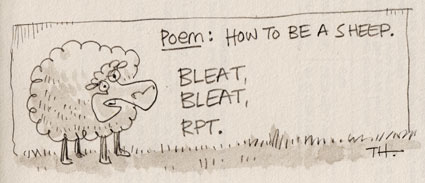 Poem: HOW TO BE A SHEEP.
BLEAT,
BLEAT,
RPT.
TH.